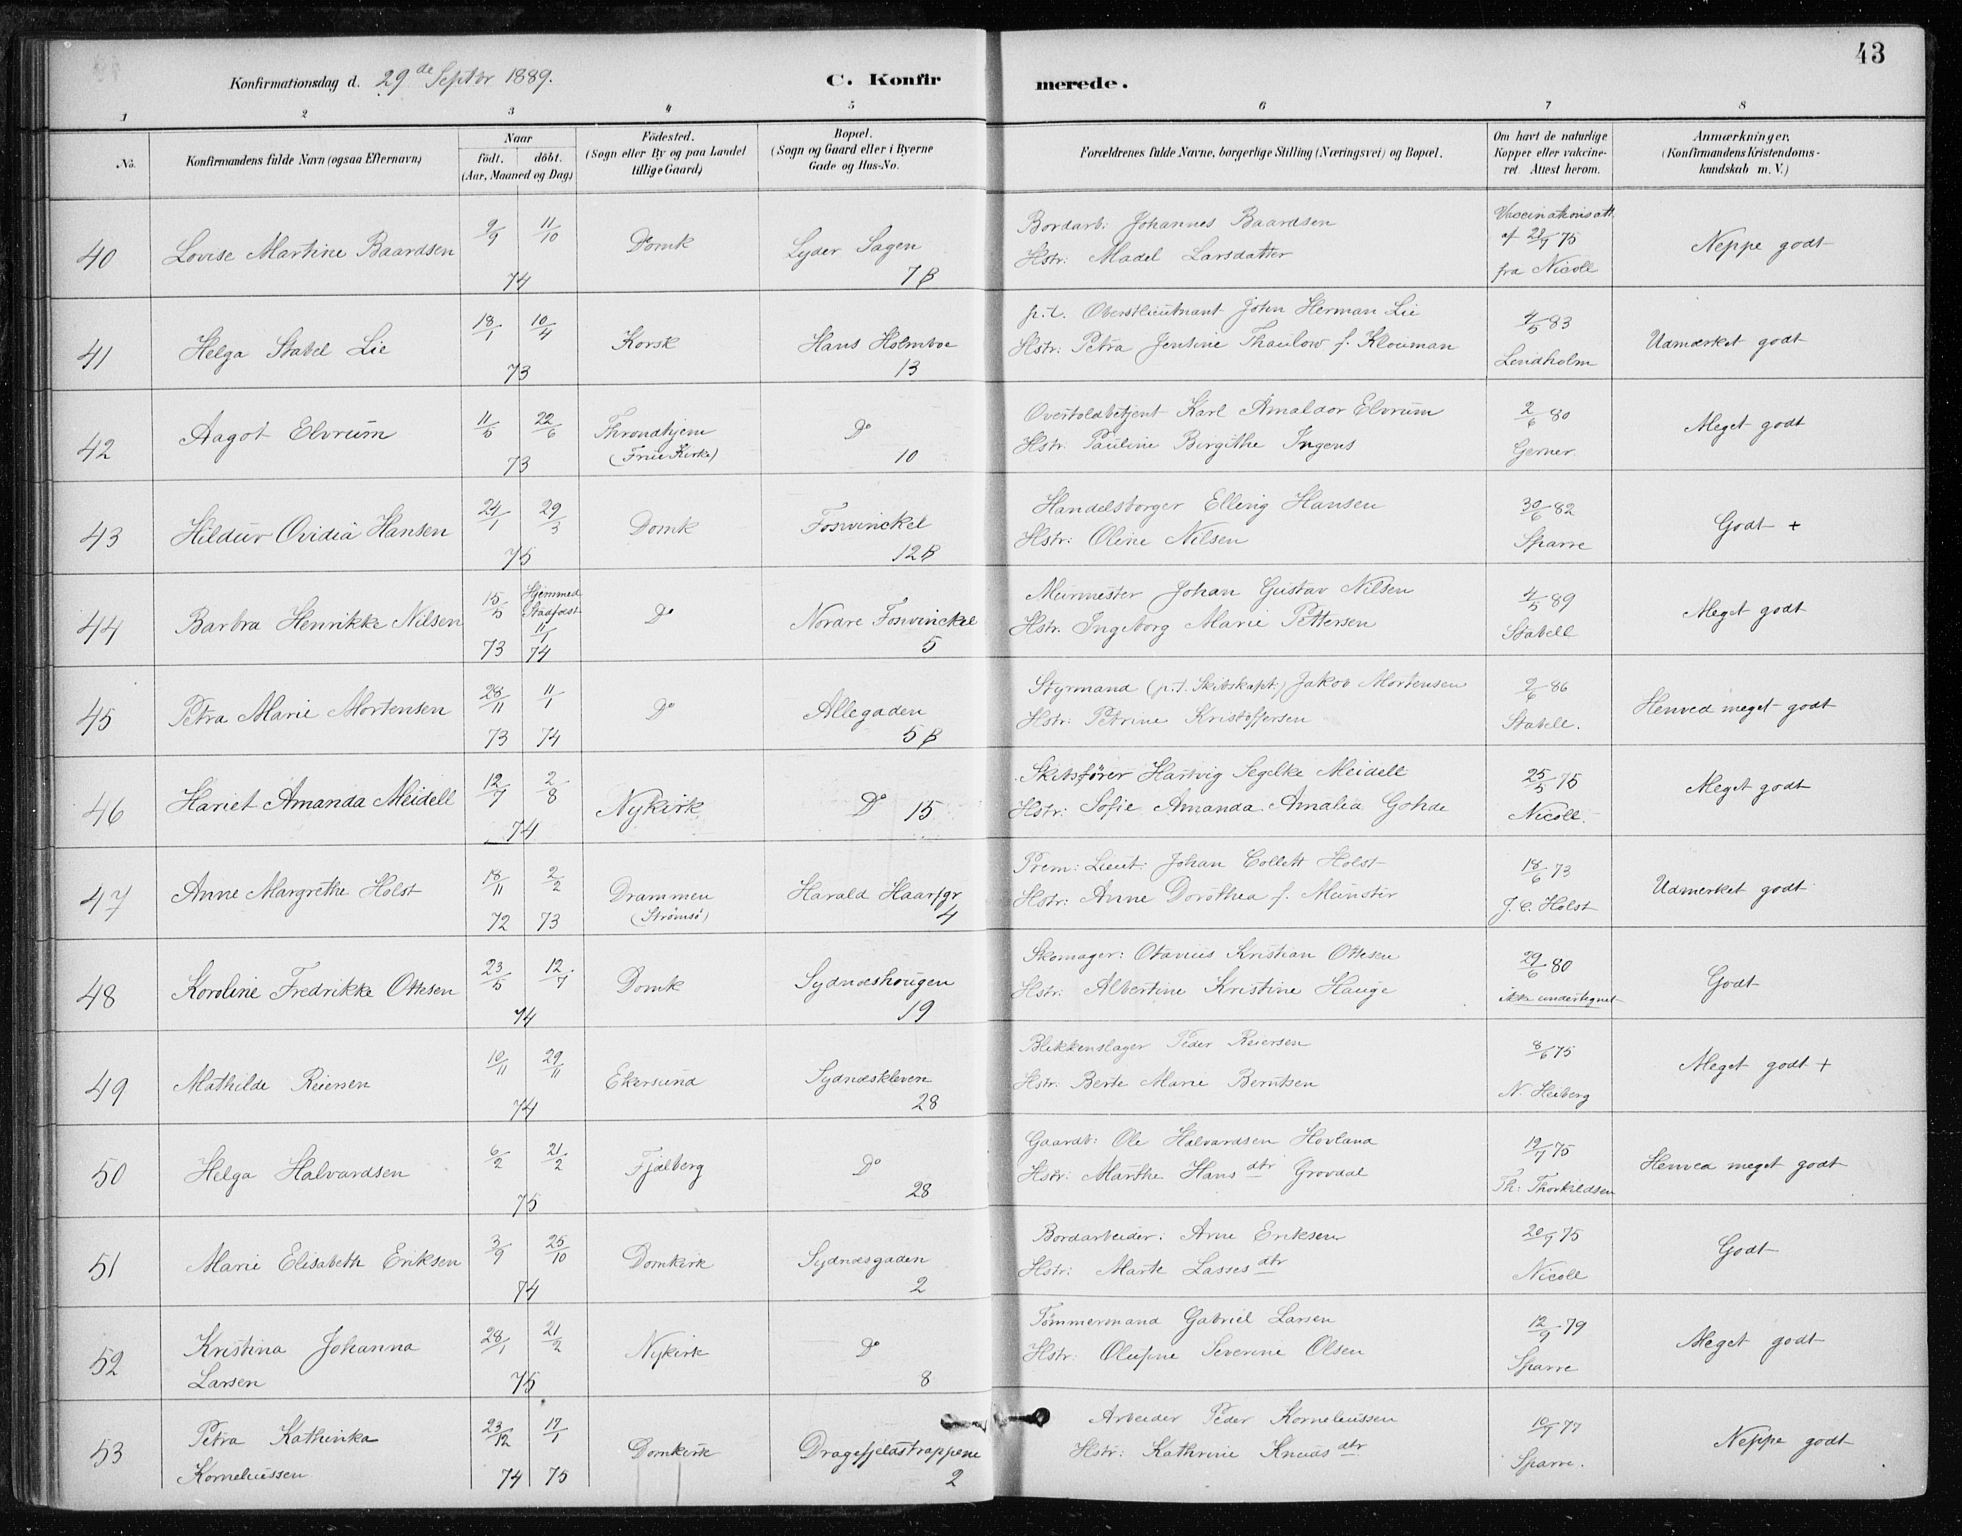 43
Konfirmationsdag d. 29de Septbr 1889.
C. Konfir
merede.
1 2 3 4 5 6 7 8
No.
Konfirmandens fulde Navn (ogsaa Efternavn)
Naar
født. døbt.
(Aar, Maaned og Dag)
Fødested.
(Sogn eller By og paa Landet
tillige Gaard)
Bopæl.
(Sogn og Gaard eller i Byerne
Gade og Hus-No.
Forældrenes fulde Navne, borgerlige Stilling (Næringsvei) og Bopæl.
Om havt de naturlige
Kopper eller vakcine-
ret. Attest herom.
Anmærkninger.
(Konfirmandens Kristendoms-
kundskab m. V.)
40 Lovise Martine Baardsen 9/9 11/10 74 Domk Lyder Sagen 7B
Bordarb: Johannes Baardsen
Hstr: Madel Larsdatter
Vaccinationsatt.
af 21/9 75
fra Nicoll
Neppe godt
41 Helga Stabel Lie 18/1 10/4 73 Korsk Hans Holmboe 13
p.t. Oberstlieutnant John Herman Lie
Hstr: Petra Jensine Thaulow f. Klouman
4/5 83
Lendholm
Udmærket godt
42 Aagot Elvrum 11/5 22/6 73 Throndhjem
(Frue Kirke)
Do 10
Overtoldbetjent Karl Arnaldor Elvrum
Hstr: Pauline Birgithe Ingens
2/6 80
Gerner
Meget godt
43 Hildur Ovidia Hansen 24/1 29/3 75 Domk Foswinckel 12B
Handelsborger Elling Hansen
Hstr: Oline Nilsen
30/6 82
Sparre
Godt +
44 Barbra Henrikke Nilsen 15/5 73 Hjemmed
Stadfæst
11/1 74
Do Nordre Foswinckel 5
Murmester Johan Gustav Nilsen
Hstr. Ingeborg Marie Pettersen
4/5 89
Stabell
Meget godt
45 Petra Marie Mortensen 28/11 73 11/1 74 Do Allegaden 5B
Styrmand (p.t. Skibskapt:) Jakob Mortensen
Hstr: Petrine Kristoffersen
2/6 86
Stabell.
Henved meget godt
46 Hariet Amanda Meidell 12/7 2/8 74 Nykirk Do 15
Skibsfører Hartvig Segelke Meidell
Hstr: Sofie Amanda Amalia Gohde
25/5 75
Nicoll.
Meget godt
47 Anne Margrethe Holst 18/11 72 2/2 73 Drammen
(Strømsö)
Harald Haarfgr 4
Prem: Lieut: Johan Collett Holst
Hstr: Anne Dorothea f. Münster
18/6 73
J. C. Holst
Udmerket godt
48 Karoline Fredrikke Ottesen 23/5 12/7 74 Domk Sydneshougen 19
Skomager: Otavius Kristian Ottesen
Hstr: Albertine Kristine Hauge
29/6 80
ikke undertegnet
Godt
49 Mathilde Reiersen 10/11 29/11 74 Ekersund Sydneskleven 28
Blikkenslager Peder Reiersen
Hstr: Berte Marie Berntsen
8/6 75
N. Heiberg
Meget godt +
50 Helga Halvardsen 6/2 21/2 75 Fjelberg Do 28
Gaardb: Ole Halvardsen Hovland
Hstr: Marthe Hansdtr Grovdal
19/7 75
Th: Thorkildsen
Henved meget godt
51 Marie Elisabeth Eriksen 3/9 25/10 74 Domkirk Sydnesgaden 2
Bordarbeider: Arne Eriksen
Hstr: Marte Lassesdtr
20/9 75
Nicoll
Godt
52 Kristina Johanna
Larsen
28/1 21/2 75 Nykirk Do 8
Tømmermand Gabriel Larsen
Hstr: Olufine Severine Olsen
12/9 79
Sparre
Meget godt
53 Petra Kathinka
Korneliussen
23/12 74 17/1 75 Domkirk Dragefjeldstrappene 2
Arbeider Peder Korneliussen
Hstr: Kathrine Knudsdtr
10/9 77
Sparre.
Neppe godt